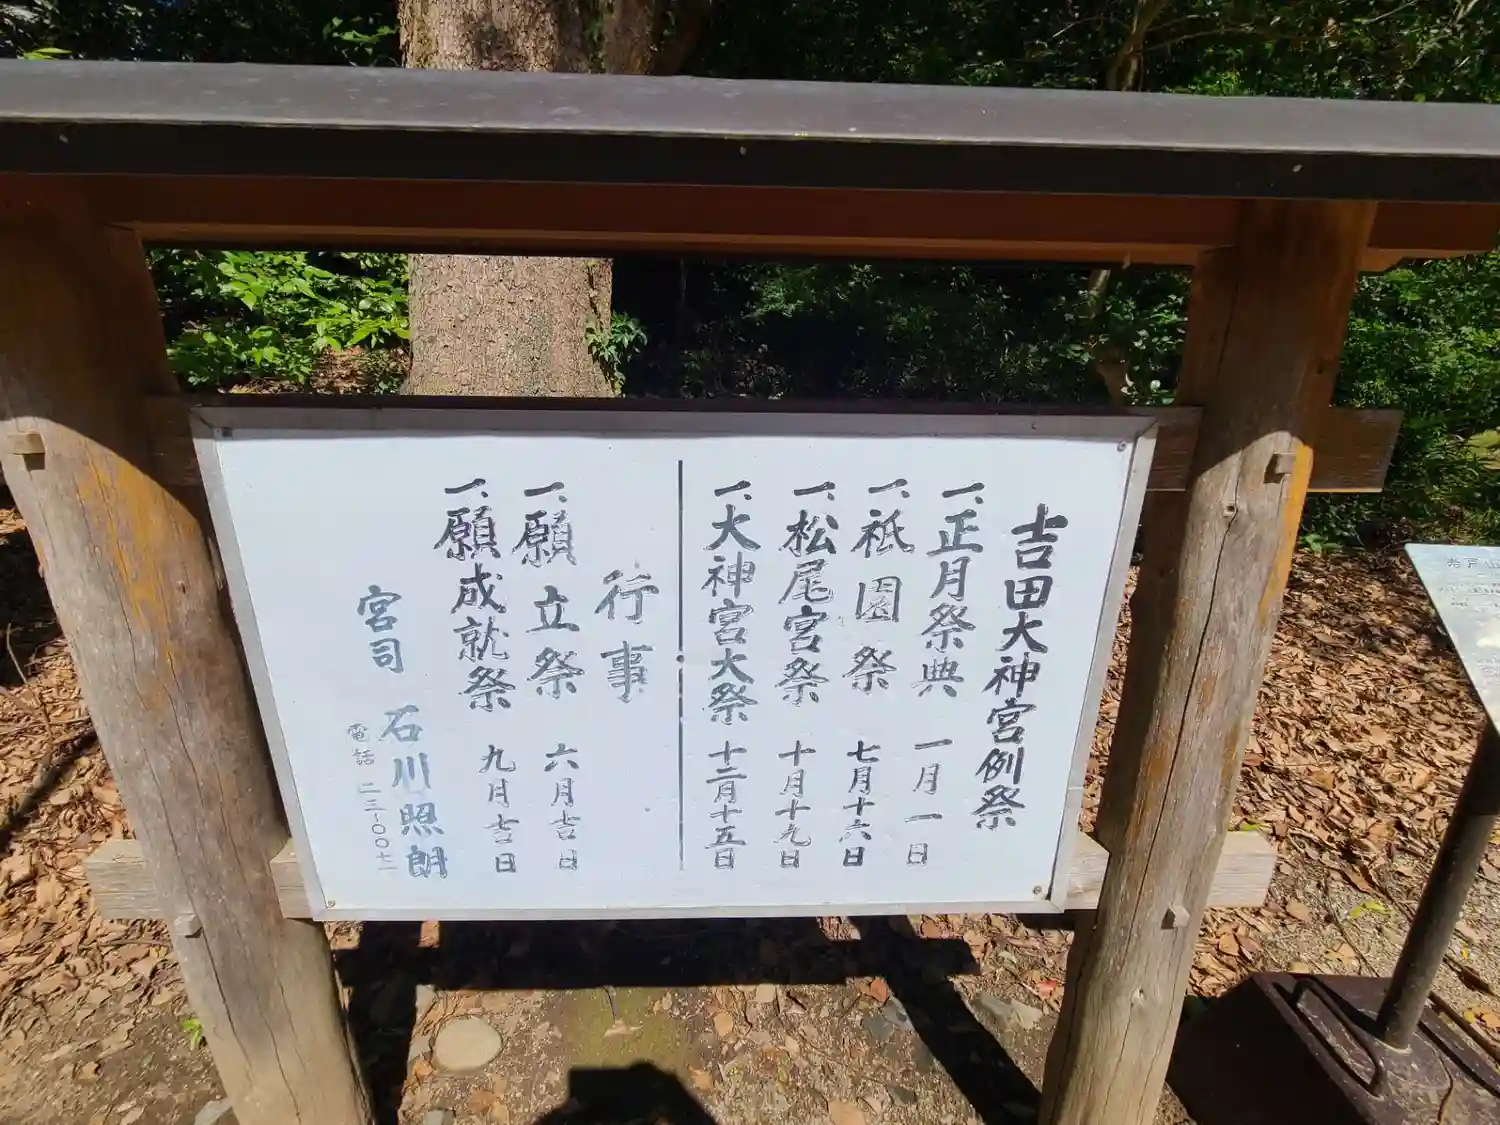 吉田大神宮例祭
一、正月祭典 一月一日
一、祇園祭 七月十六日
一、松尾宮祭 十月十九日
一、大神宮大祭 十二月十五日
行事
一、願立祭 六月吉日
一、願成就祭 九月吉日
宮司 石川照朗
電話 二三-〇〇七一